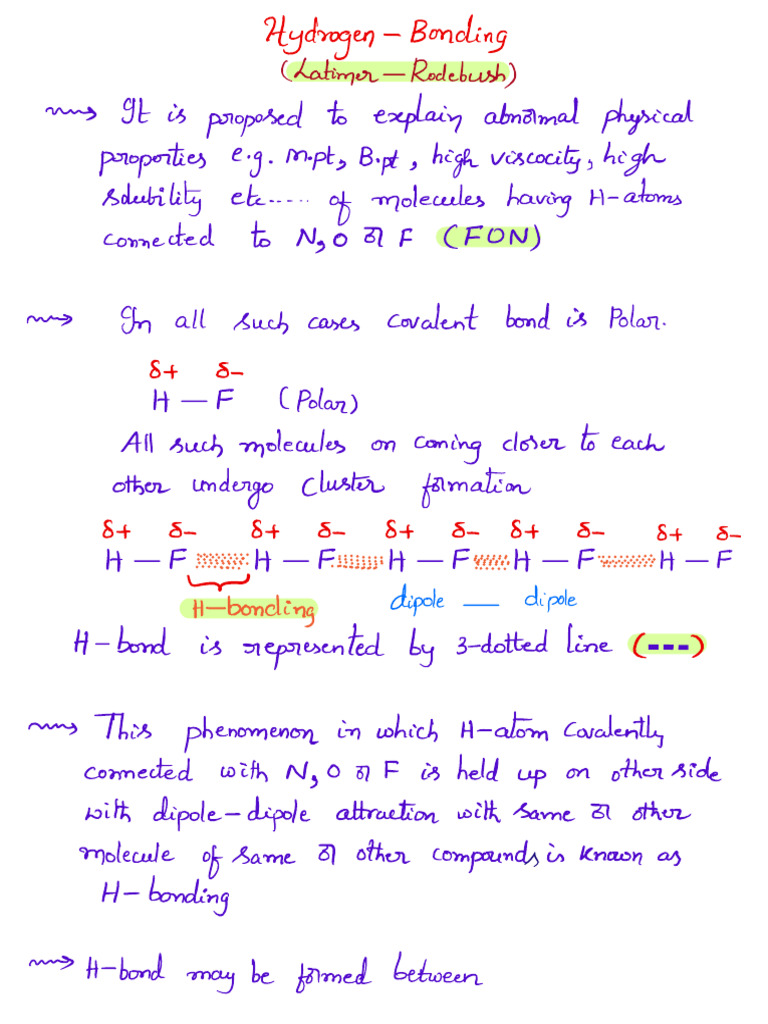 Hydrogen - Bonding
(Latimer - Rodebush)
It is proposed to explain abnormal physical
proporties e.g. m.pt, B.pt, high viscocity, high
solubility etc..... of molecules having H-atoms
connected to N, O or F (FON)
In all such cases covalent bond is Polar.
δ+ δ-
H - F (Polar)
All such molecules on coming closer to each
other undergo cluster formation
δ+ δ- δ+ δ- δ+ δ- δ+ δ- δ+ δ-
H - F H - F H - F H - F H - F
H-bonding dipole - dipole
H-bond is represented by 3-dotted line (---)
This phenomenon in which H-atom covalently
connected with N, O or F is held up on other side
with dipole-dipole attraction with same or other
molecule of same or other compounds, is known as
H-bonding
H-bond may be formed between